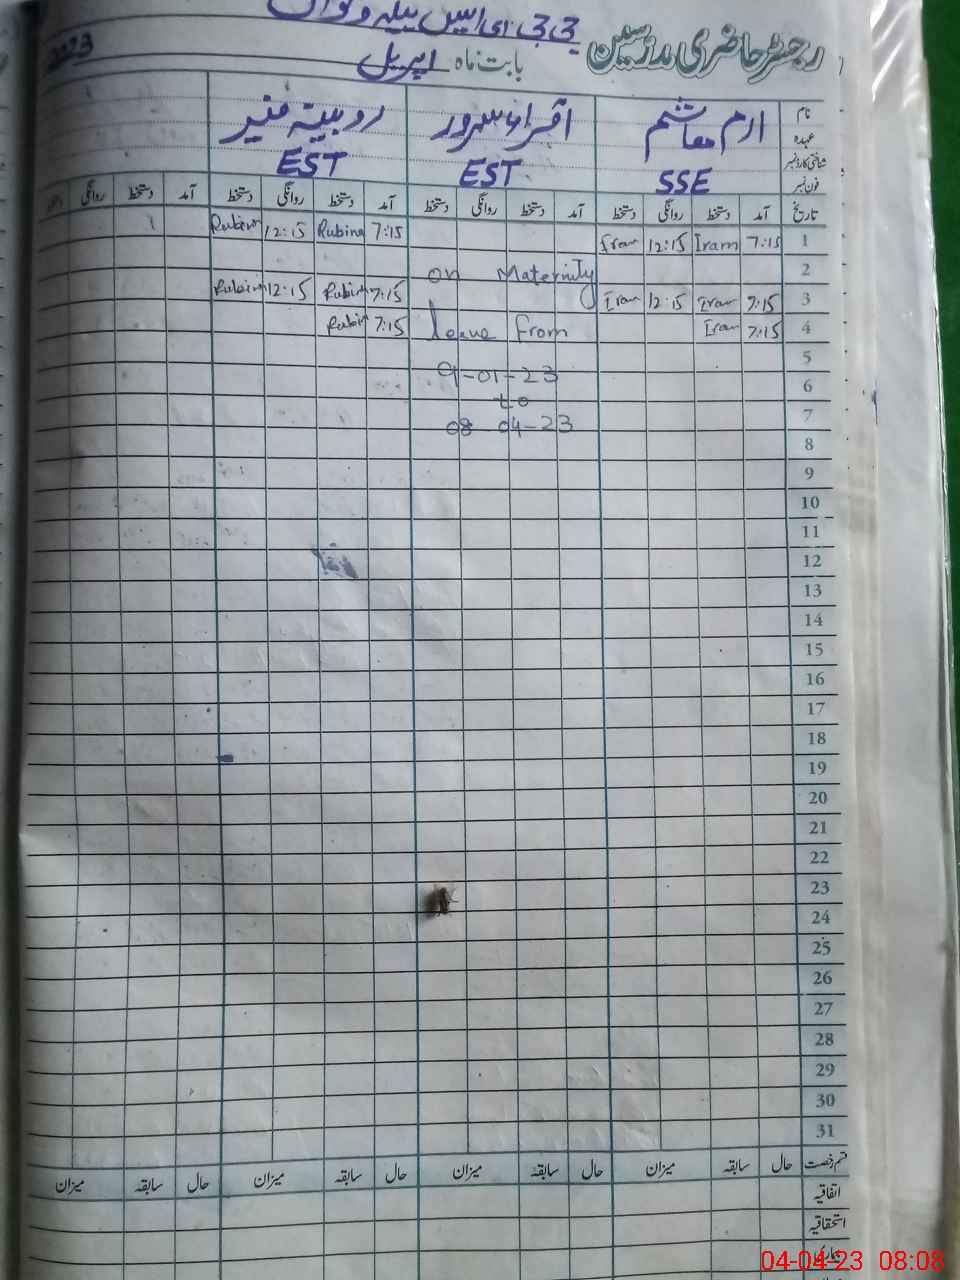 رجسٹر حاضری مدرسین
بابت ماہ اپریل 2023
نام ارم ہاشم اقراء سرور روبینہ منیر
عہدہ SSE EST EST
شناختی کارڈ نمبر
فون نمبر
تاریخ آمد دستخط روانگی دستخط آمد دستخط روانگی دستخط آمد دستخط روانگی دستخط آمد دستخط روانگی
1 7:15 Iram 12:15 Iram 7:15 Rubina 12:15 Rubina
2 on Maternity
3 7:15 Iram 12:15 Iram 7:15 Rubina 12:15 Rubina
4 7:15 Iram leave From 7:15 Rubina
5
6 9-01-23
to
7 08 04-23
8
9
10
11
12
13
14
15
16
17
18
19
20
21
22
23
24
25
26
27
28
29
30
31
قسم رخصت حال سابقہ میزان حال سابقہ میزان حال سابقہ میزان حال سابقہ میزان
اتفاقیہ
استحقاقیہ
بیماری
04-04-23 08:08